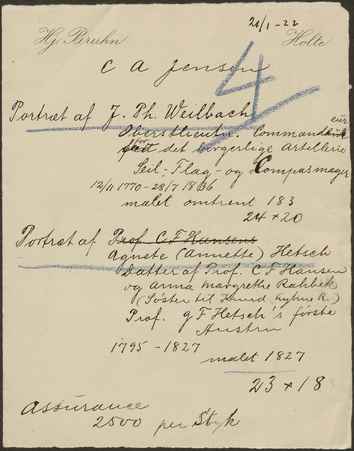 21/1-22
Hj. Bruhn Holte
C A Jensen
4
Portræt af J. Ph. Weilbach
Oberstlieutn. Commandeur
ved det borgerlige Artilleri
Seil-, Flag- og Compasmager
12/11 1770-28/7 1836
malet omtrent 183
24 × 20
Portræt af Prof. C F Hansens
Agnete (Annette) Hetsch
Datter af Prof. C F Hansen
og Anna Margrethe Rahbek
(Søster til Knud Lyhne R.)
Prof. G F Hetsch's første
Hustru
1795-1827
malet 1827
23 × 18
Assurance
2500 per Styk